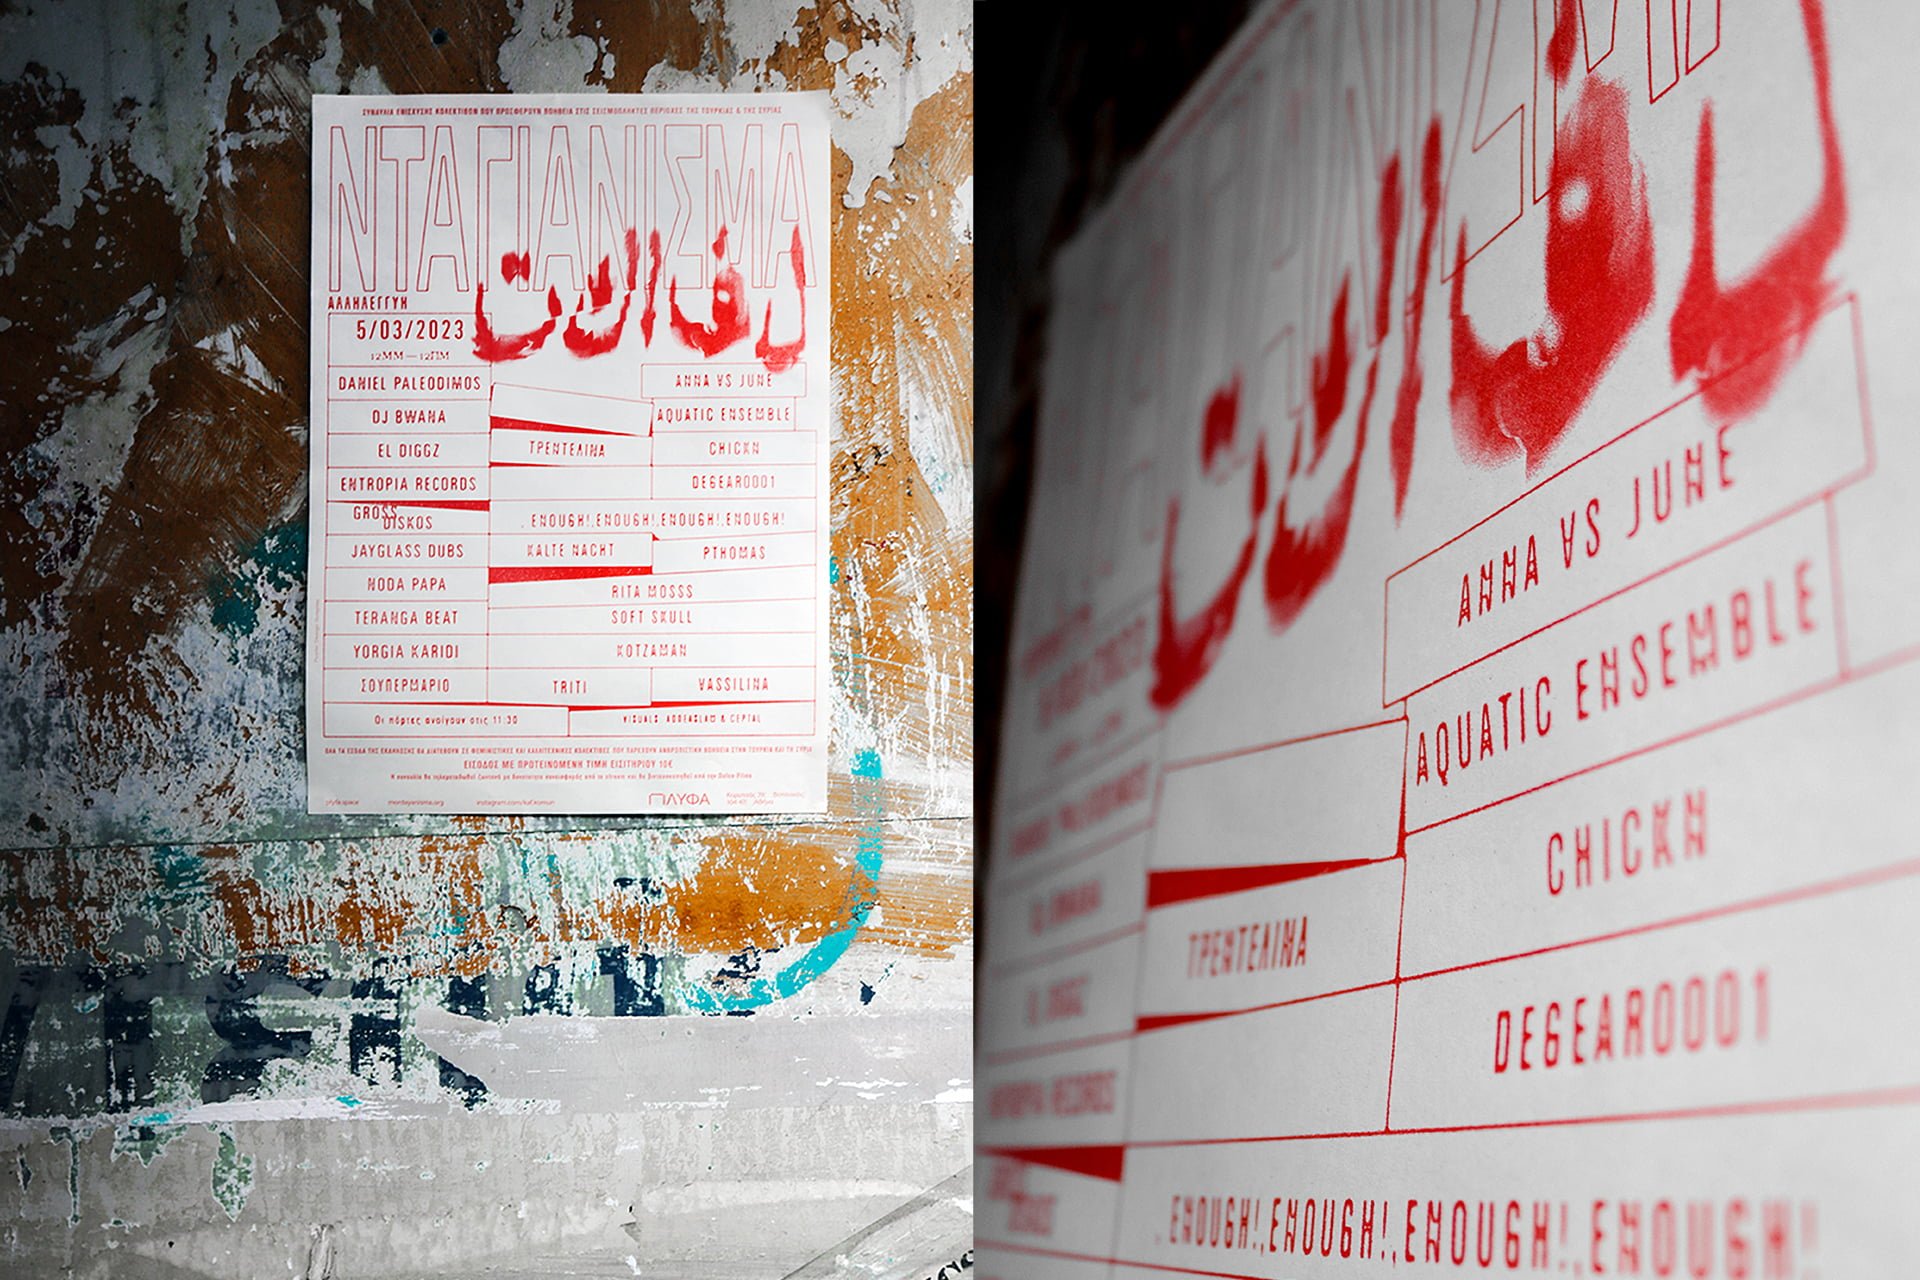 ΣΥΝΑΥΛΙΑ ΕΝΙΣΧΥΣΗΣ ΚΟΛΕΚΤΙΒΩΝ ΠΟΥ ΠΡΟΣΦΕΡΟΥΝ ΒΟΗΘΕΙΑ ΣΤΙΣ ΣΕΙΣΜΟΠΛΗΚΤΕΣ ΠΕΡΙΟΧΕΣ ΤΗΣ ΤΟΥΡΚΙΑΣ & ΤΗΣ ΣΥΡΙΑΣ
ΝΤΑΓΙΑΝΙΣΜΑ
ΑΛΛΗΛΕΓΓΥΗ
5/03/2023
12ΜΜ — 12ΠΜ
DANIEL PALEODIMOS
ANNA VS JUNE
DJ BWANA
AQUATIC ENSEMBLE
EL DIGGZ
ΤΡΕΝΤΕΛΙΝΑ
CHICKN
ENTROPIA RECORDS
DEGEAR0001
GROSS
DISKOS
. ENOUGH!,ENOUGH!,ENOUGH!,ENOUGH!
JAYGLASS DUBS
KALTE NACHT
PTHOMAS
NODA PAPA
RITA MOSSS
TERANGA BEAT
SOFT SKULL
YORGIA KARIDI
KOTZAMAN
ΣΟΥΠΕΡΜΑΡΙΟ
TRITI
VASSILINA
Οι πόρτες ανοίγουν στις 11:30
ΟΛΑ ΤΑ ΕΣΟΔΑ ΤΗΣ ΕΚΔΗΛΩΣΗΣ ΘΑ ΔΙΑΤΕΘΟΥΝ ΣΕ ΦΕΜΙΝΙΣΤΙΚΕΣ ΚΑΙ ΚΑΛΛΙΤΕΧΝΙΚΕΣ ΚΟΛΕΚΤΙΒΕΣ ΠΟΥ ΠΑΡΕΧΟΥΝ ΑΝΘΡΩΠΙΣΤΙΚΗ ΒΟΗΘΕΙΑ ΣΤΗΝ ΤΟΥΡΚΙΑ ΚΑΙ ΤΗ ΣΥΡΙΑ
ΕΙΣΟΔΟΣ ΜΕ ΠΡΟΤΕΙΝΟΜΕΝΗ ΤΙΜΗ ΕΙΣΙΤΗΡΙΟΥ 10€
plyfa.space
mordayanisma.org
ΠΛΥΦΑ
ANNA VS JUNE
AQUATIC ENSEMBLE
CHICKN
ΤΡΕΝΤΕΛΙΝΑ
DEGEAR0001
. ENOUGH!,ENOUGH!,ENOUGH!,ENOUGH!